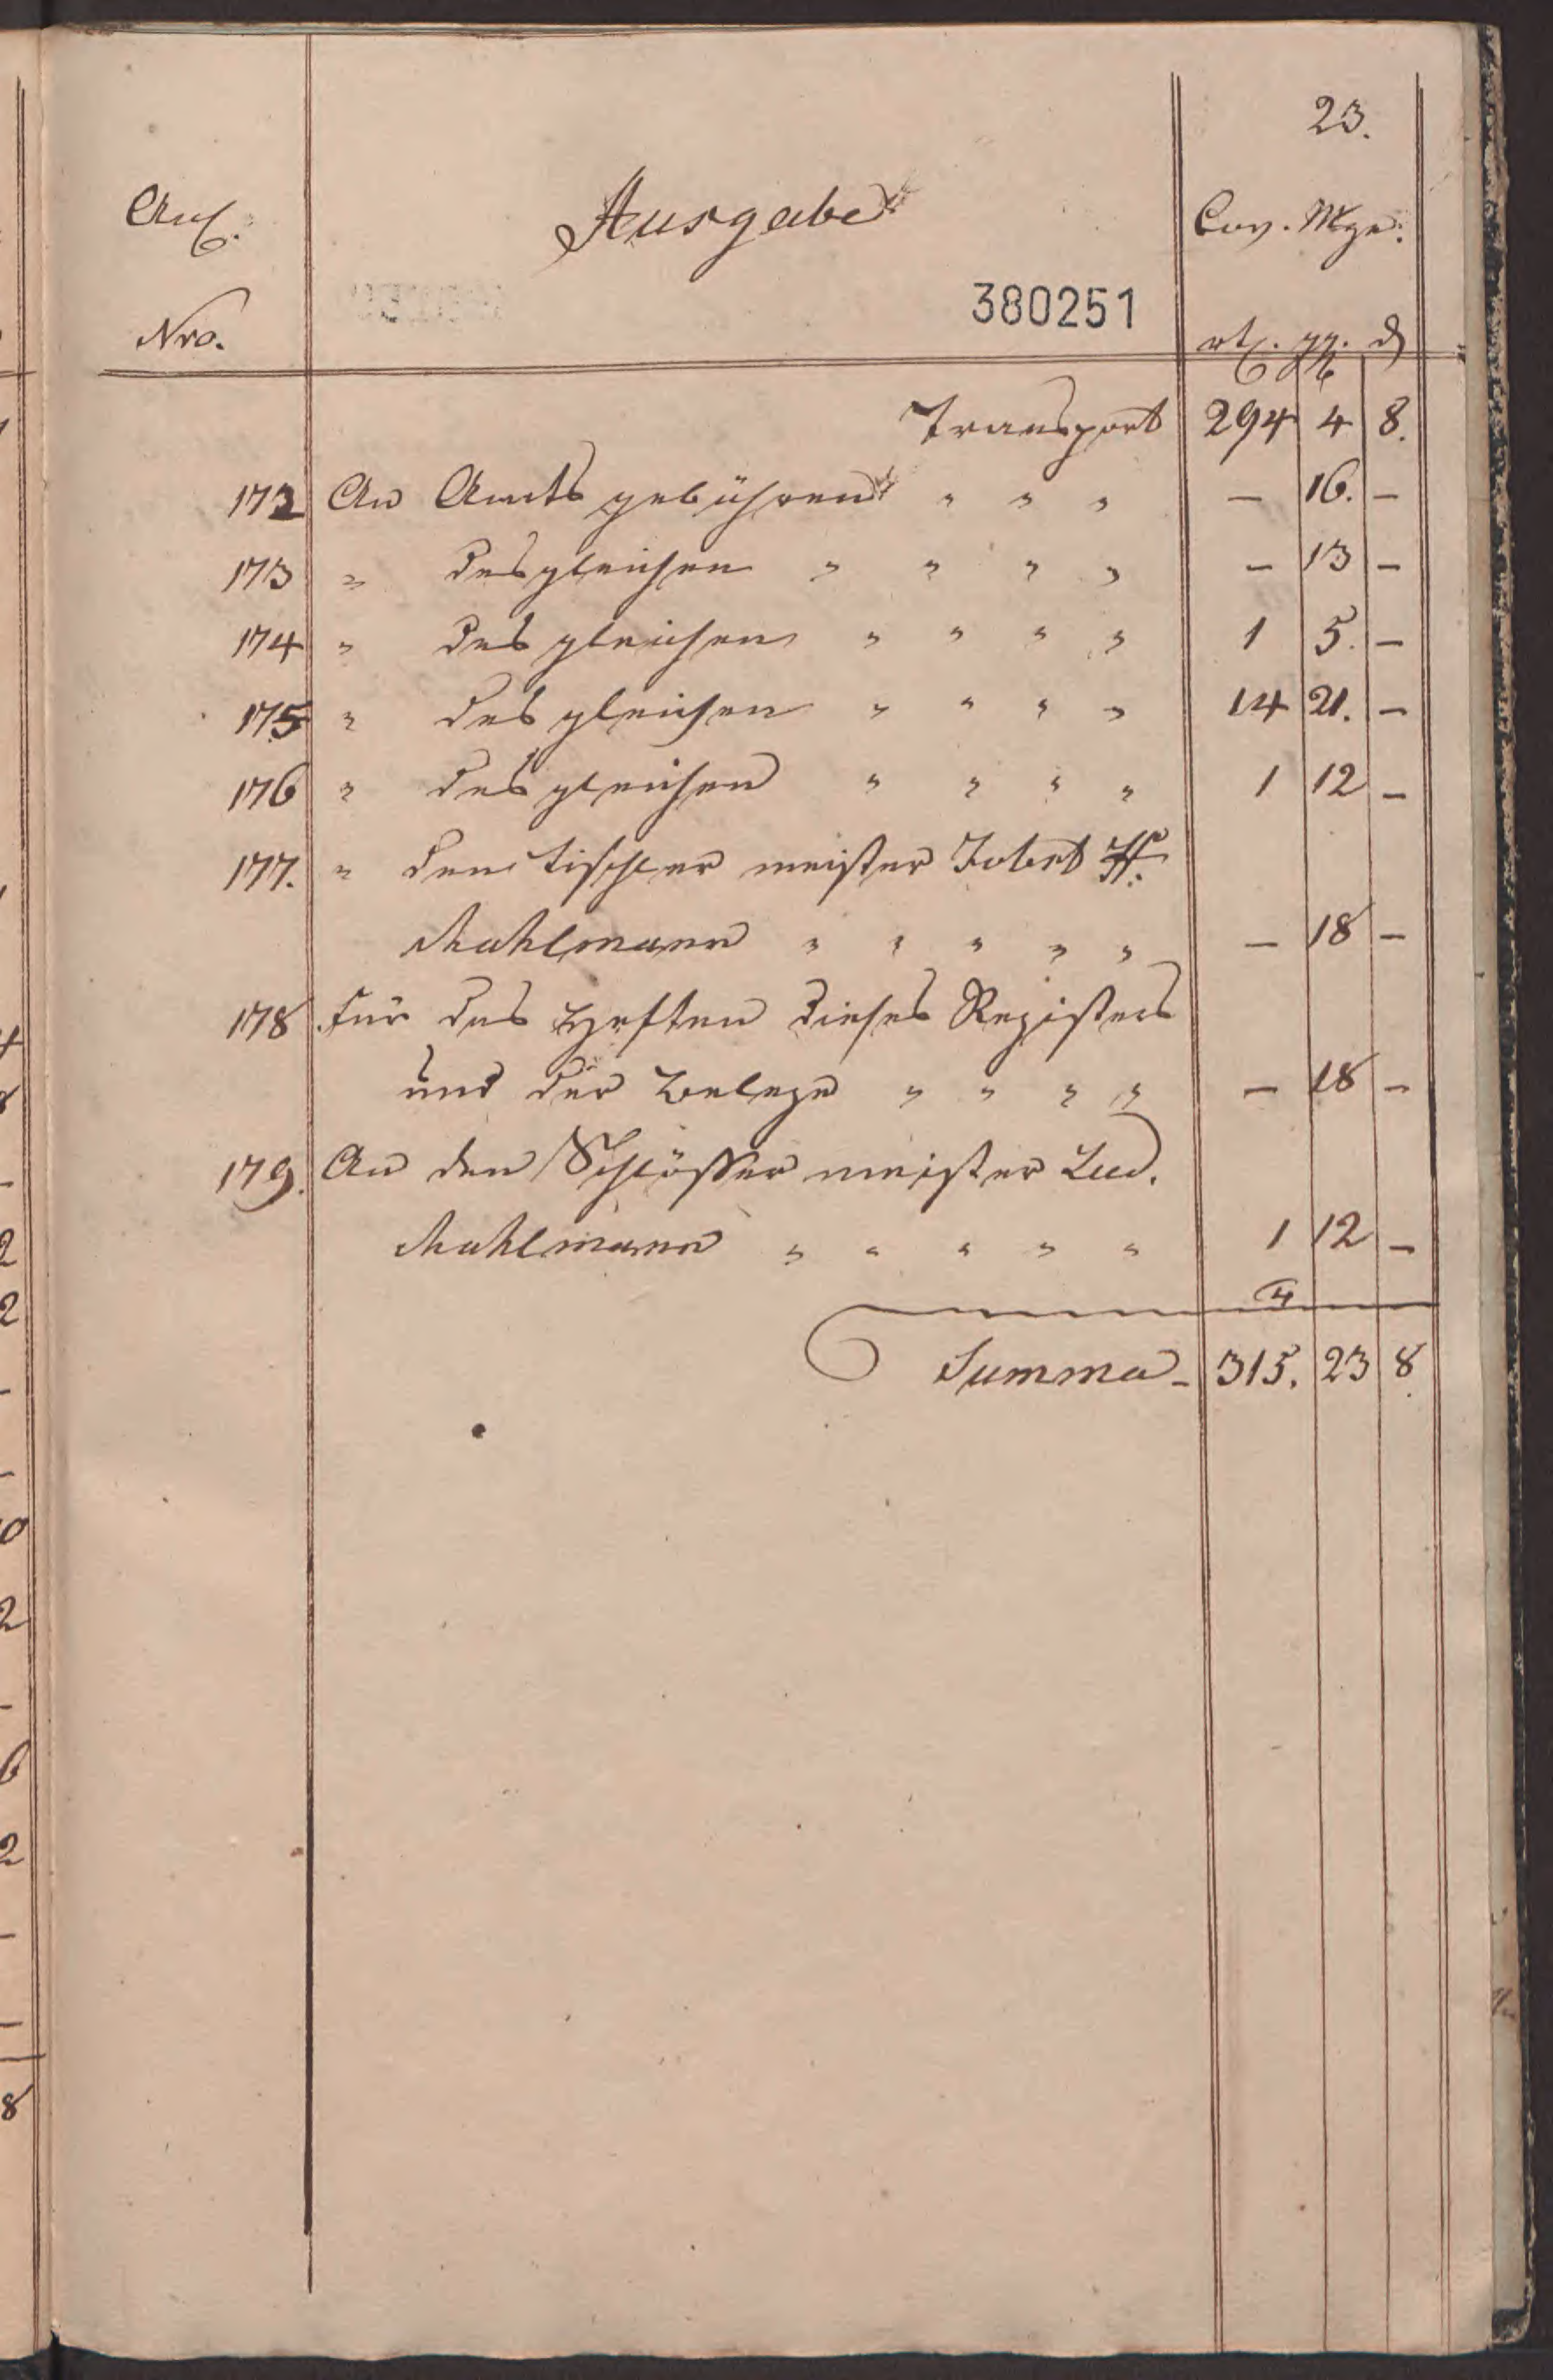 23.
Anl. Ausgabe Cov. Mze.
Nro. 380251 rtl. ggr. d
Transport 294 4 8.
172 An Amtsgebühren " " " — 16. —
173 " desgleichen " " " " — 13 —
174 " desgleichen " " " " 1 5. —
175 " desgleichen " " " " 14 21. —
176 " desgleichen " " " " 1 12 —
177. " den Tischler meister Jobst H.
Mahlmann " " " " " — 18 —
178 für das Heften dieses Registers
und der Belege " " " " — 18 —
179. An den Schlösser meister Lud.
Mahlmann " " " " " 1 12 —
4
Summa - 315. 23 8